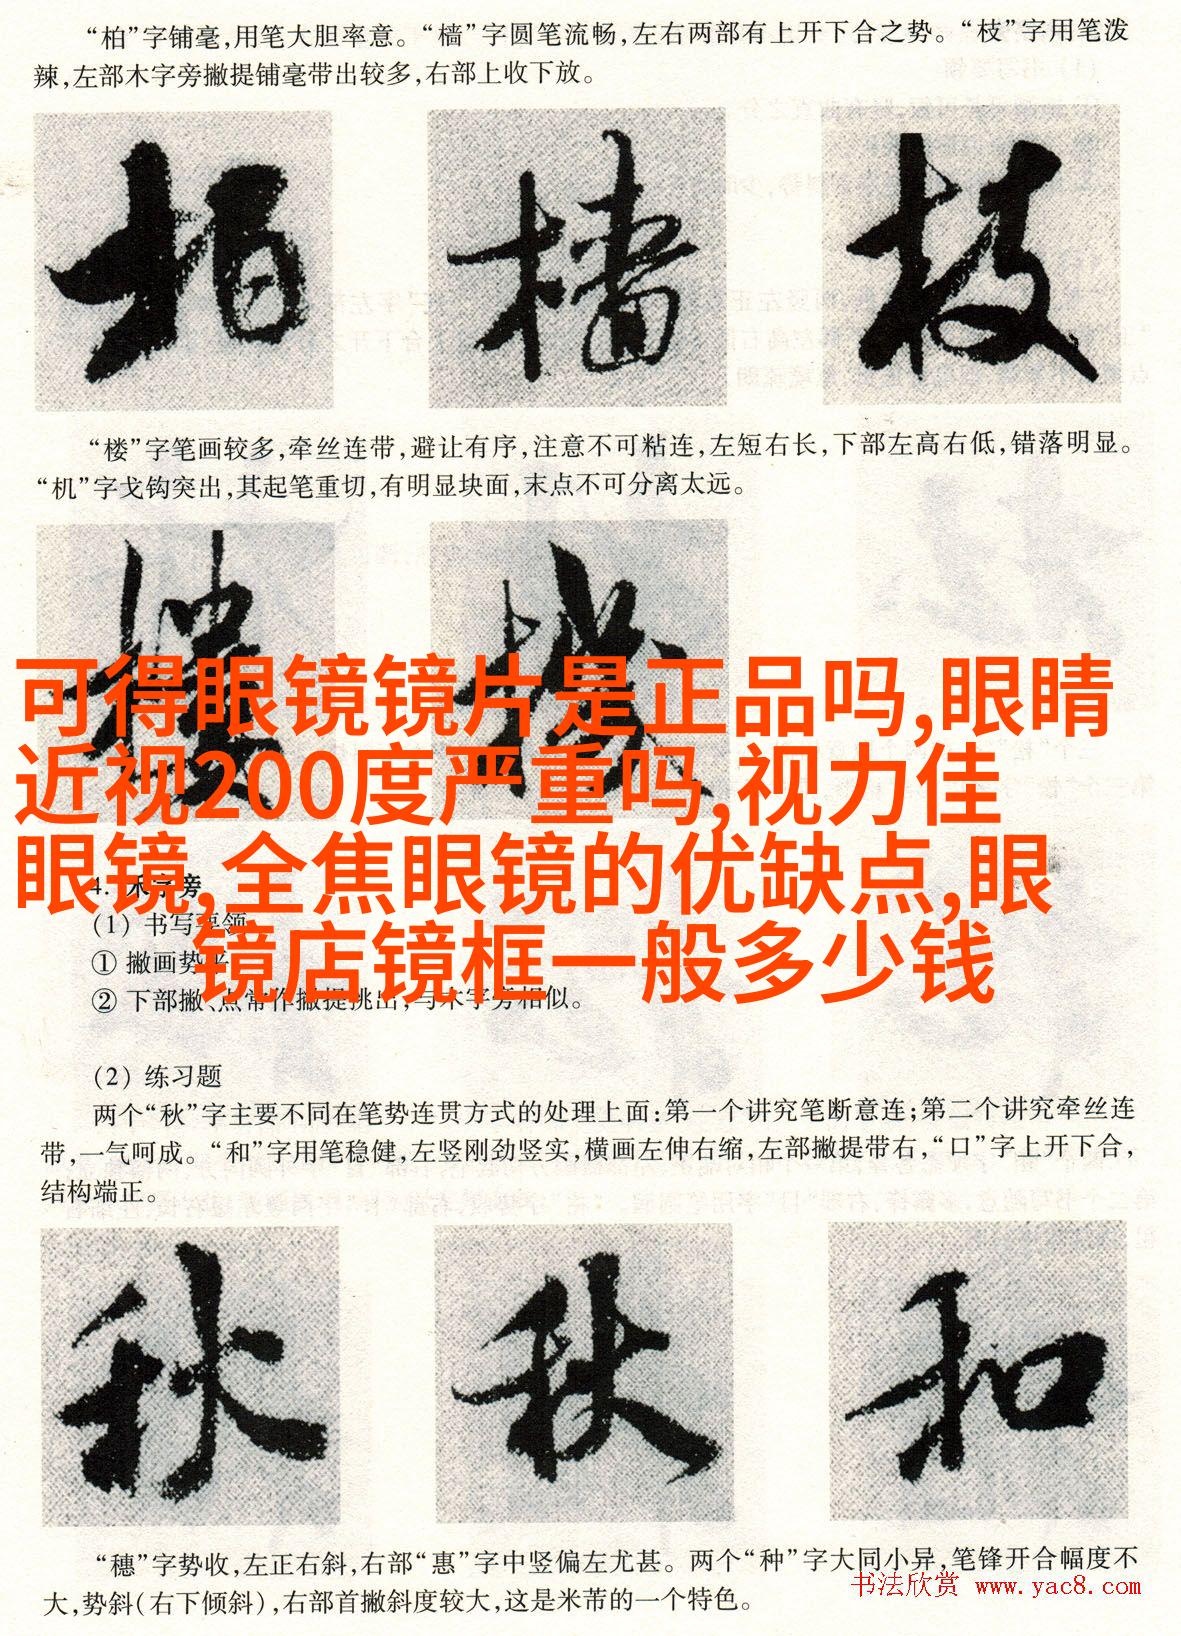 “柏”字铺毫,用笔大胆率意。“樯”字圆笔流畅,左右两部有上开下合之势。“枝”字用笔泼
辣,左部木字旁撇提铺毫带出较多,右部上收下放。
柏 樯 枝
“楼”字笔画较多,牵丝连带,避让有序,注意不可粘连,左短右长,下部左高右低,错落明显。
“机”字戈钩突出,其起笔重切,有明显块面,末点不可分离太远。
楼 机
可得眼镜镜片是正品吗,眼睛
近视200度严重吗,视力佳
眼镜,全焦眼镜的优缺点,眼
镜店镜框一般多少钱
4. 禾字旁
(1) 书写要领
① 撇画势平
② 下部撇、点常作撇提挑出,与木字旁相似。
(2) 练习题
两个“秋”字主要不同在笔势连贯方式的处理上面:第一个讲究笔断意连;第二个讲究牵丝连
带,一气呵成。“和”字用笔稳健,左竖刚劲竖实,横画左伸右缩,左部撇提带右,“口”字上开下合,
结构端正。
秋 秋 和
“穗”字势收,左正右斜,右部“惠”字中竖偏左尤甚。两个“种”字大同小异,笔锋开合幅度不
大,势斜(右下倾斜),右部首撇斜度较大,这是米芾的一个特色。
书法欣赏 www.yac8.com